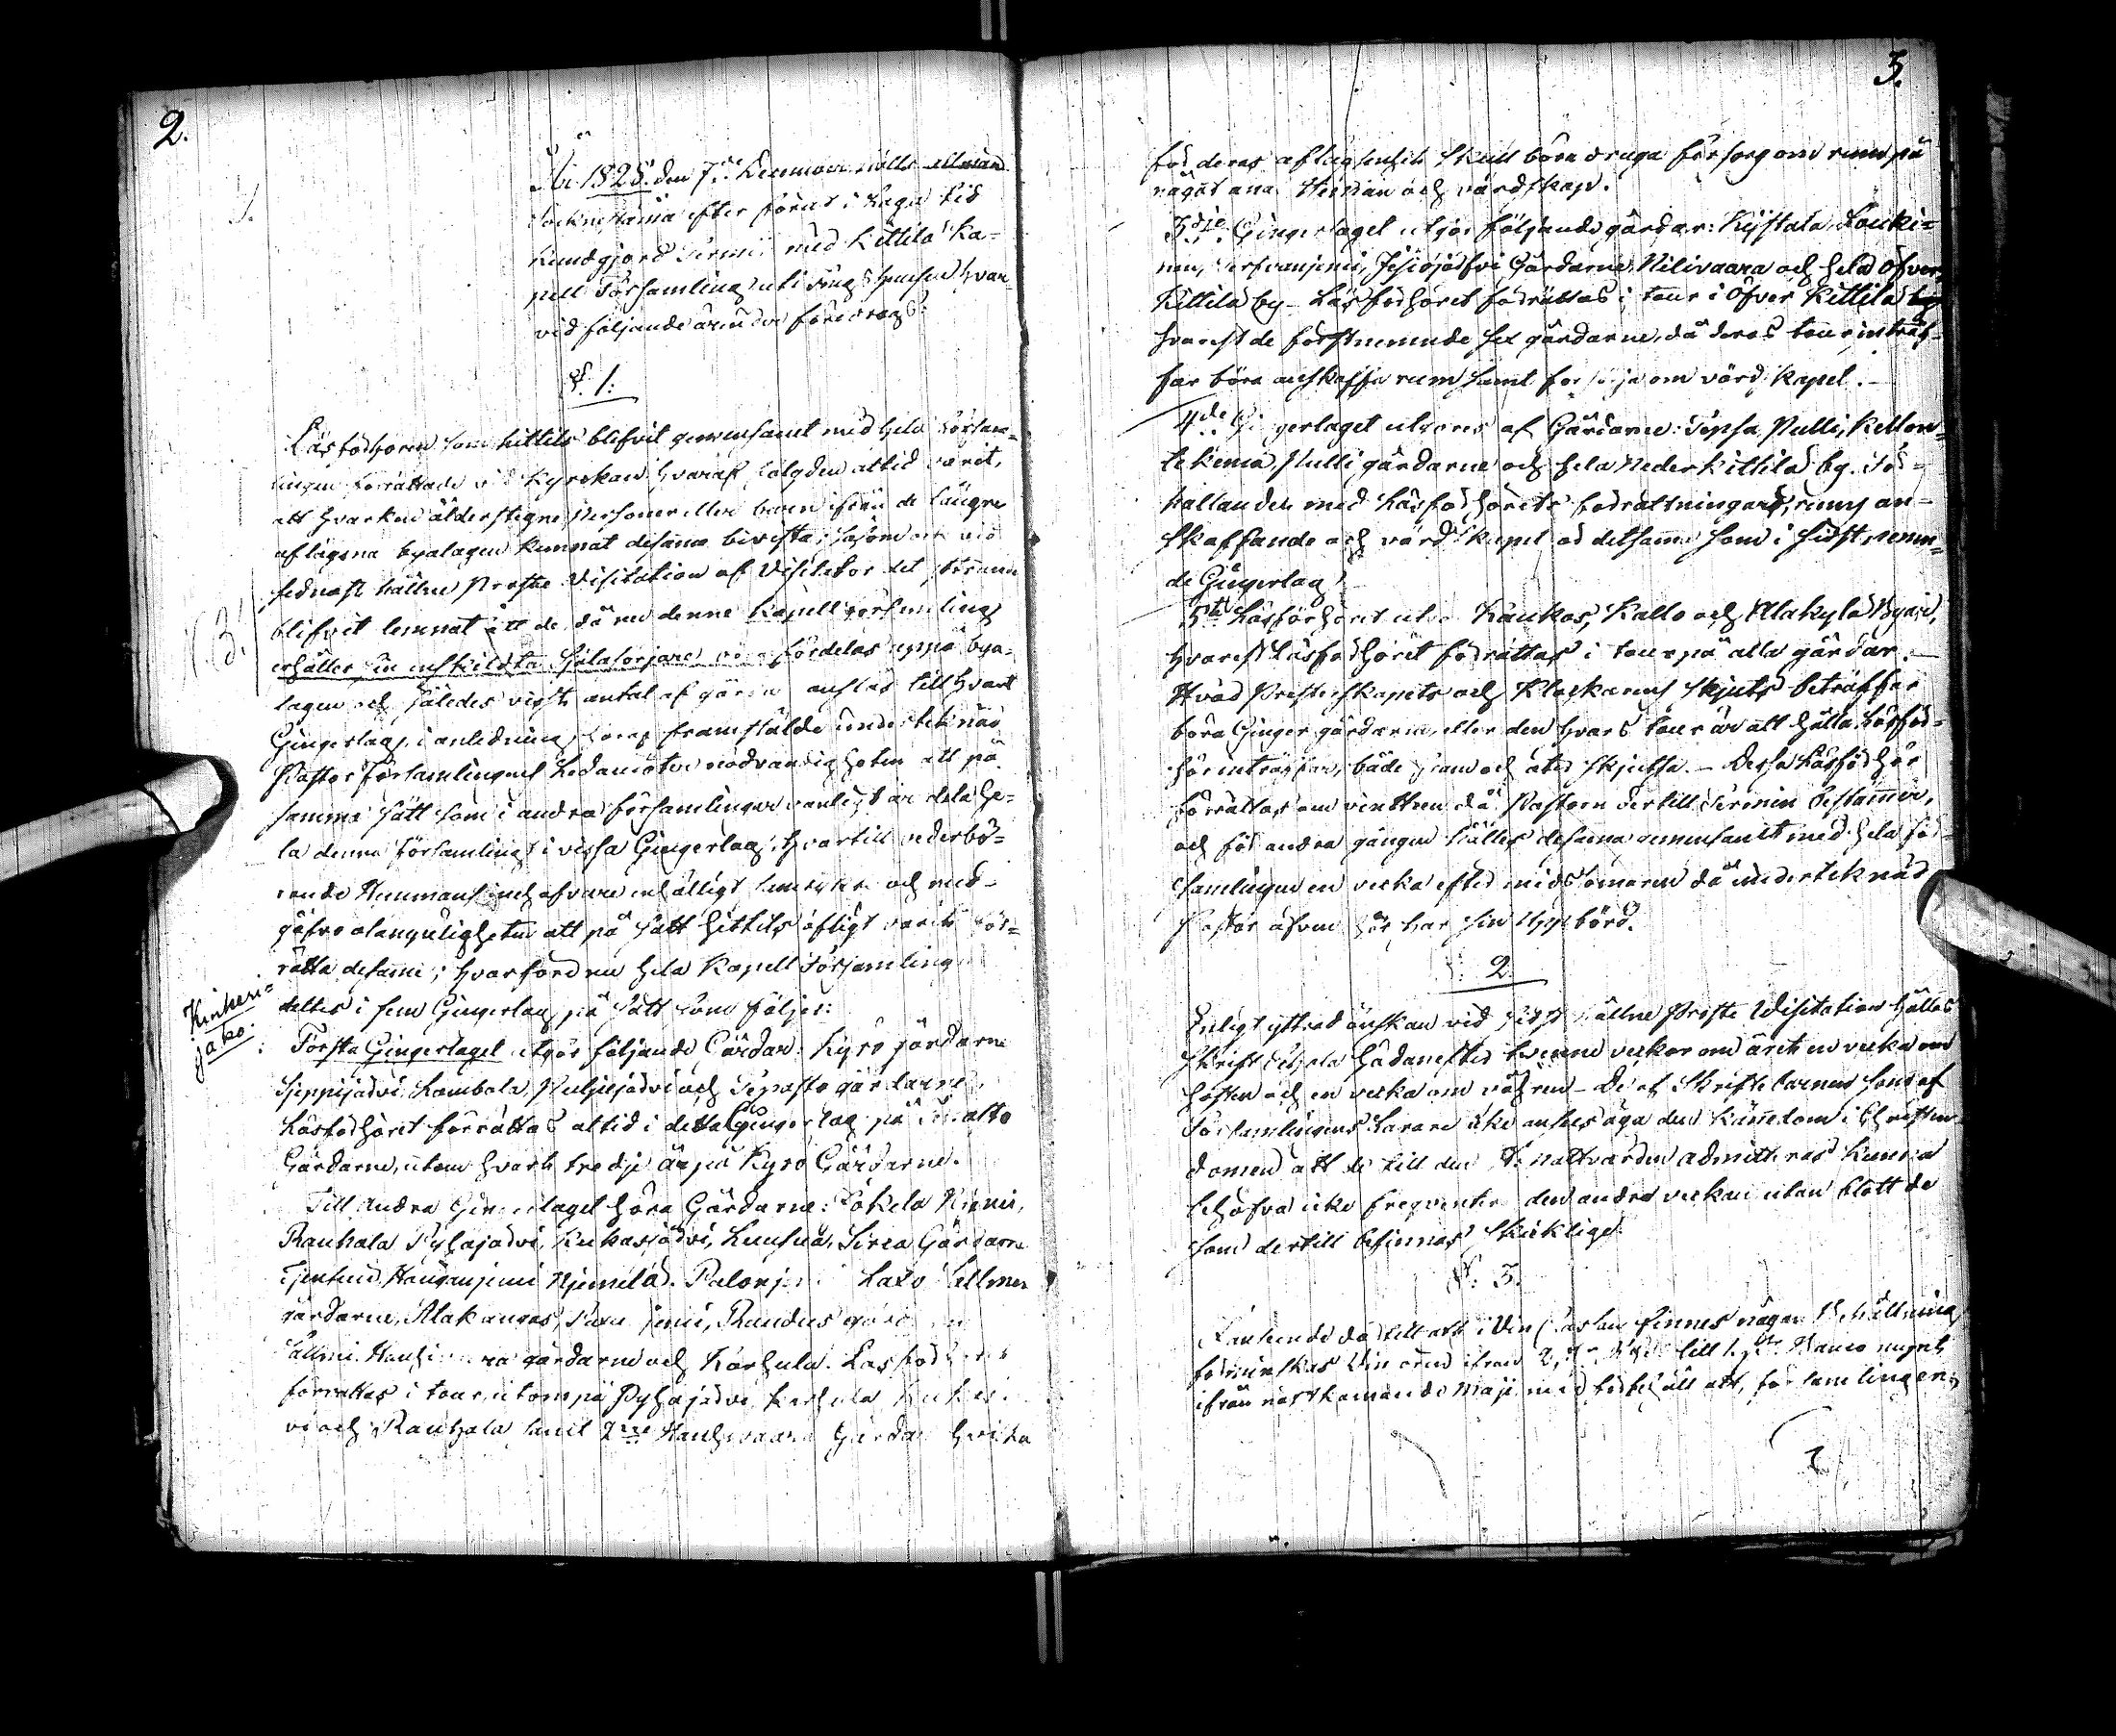 2.
År 1828 den 7de hölls allmän
Socknestämma efter förut i Laga tid
kundgjord Termin med Kittilä Ka=
pell Församling uti Tings hvar
vid följande ärender föredrogs:
§. 1:
Läsförhören som hittils blifvit gemensamt med hela Försam=
lingen förrättade vid Kyrckan hvaraf fölgden altid varit,
att hvarken ålderstigne Personer eller barn ifrån de längre
aflägsna byalagen kunnat desamma bivista; såsom ock vid
sednast hållne Prosts Visitation af Visitator det
blifvit lemnat att de, då nu denne Kapell Församling
erhåller sin enskildta Själasörjare, fördelas uppå bya=
lagen och således visst antal af gårdar anslås till hvart
Gingerlag, i anledning häraf framstälde underteknad
Pastor Församlingens Ledamöter nödvändigheten att på
samma sätt som i andra församlingar vanligt är dela he=
la denna församling i vissa Gingerlag, hvartill vederbö=
rande Hemmansinnehafvare enhälligt samtyckte och med=
gåfvo olämpligheten att på sätt hittils öfligt varit för=
rätta desamma; hvarföre nu hela Kapell Församlingen
deltes i fem Gingerlag på sätt som följer:
Kinkeri=
jako:
Första Gingerlaget utgör följande Gårdar: Kyrö gårdarne
Sjeppijärvi, Lombola, Puljujärvi och Tepasto gårdarne.
Läsförhöret förrättas altid i detta Gingerlag på
Gårdarne, utom hvart tredje år på Kyrö Gårdarne.
Till Andra Gingerlaget höra Gårdarne: Kökelä
Rauhala Pyhäjärvi, Kukasjärvi, Sirca Gårdarne
Haurajenni
gårdarne, Alakangas, Raudus
gårdarne och Körhula. Läsförhöret
förrättas i tour, utom på Pyhäjärvi
och Rauhala samt 2ne Gårdar hvilka
3.
för deras aflägsenhet skull böra draga försorg om rum på
något annat Hemman och värdskap.
3dje Gingerlaget utgör följande gårdar: Kystala, Louki=
nen, Gårdarne, Nilivaara och hela Öfver
Kittilä by. Läsförhöret förrättas i tour i Öfver Kittilä by
hvarest de förstnemnde sex gårdarne, då deras tour inträf=
far böra anskaffa rum samt försörja om värdskapet.
4de Gingerlaget utgöres af Gårdarne: Tepsa, Pulli, Kelton=
gårdarne och hela Nederkittilä by. För=
hållandet med Läsförhörets förrättningar, rums an=
skaffande och värdskapet är detsamma som i sidst nemn=
de Gingerlag
5te Läsförhöret utgör Kaukos, Kallo och Alakylä Byar,
hvarest Läsförhöret förrättas i tour på alla gårdar.
Hvad Presterskapets och Klockarens skjuts beträffar
böra Ginger gårdarne, eller den hvars tour är att hålla Läsför=
hör inträffar, både fram och åter skjutsa. Dessa Läsförhör
förrättas om vinttren då Pastorn dertill Termin bestämmer,
och för andra gången hålles desamma gemensamt med hela för=
samlingen en vecka efter midsommaren då undertecknad
Pastor äfven här har sin Uppbörd.
§. 2
Enligt yttrad önskan vid sidst hållne Prosts Visitation hålles
Skriftskola hädanefter tvenne veckor om året en vecka om
hösten och en vecka om våhren. De af Skriftebarnen som af
Församlingens Lärare icke anses äga den känedom i Christen
domen att de till den H: Nattvarden admitteras kunna
behöfva icke frequentera den andra veckan utan blott de
som dertill befinnas skicklige.
§. 3.
Seende då till att i Vin Cassan finnes någon Behållning
förminskas Vin ören ifrån till
ifrån nästkommande Maji med förbehåll att, församlingen